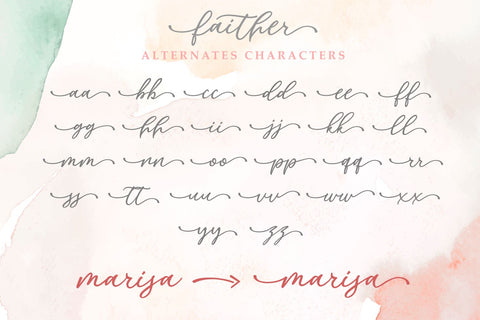 faither
ALTERNATES CHARACTERS
aa bb cc dd ee ff
gg hh ii jj kk ll
mm nn oo pp qq rr
ss tt uu vv ww xx
yy zz
marisa → marisa